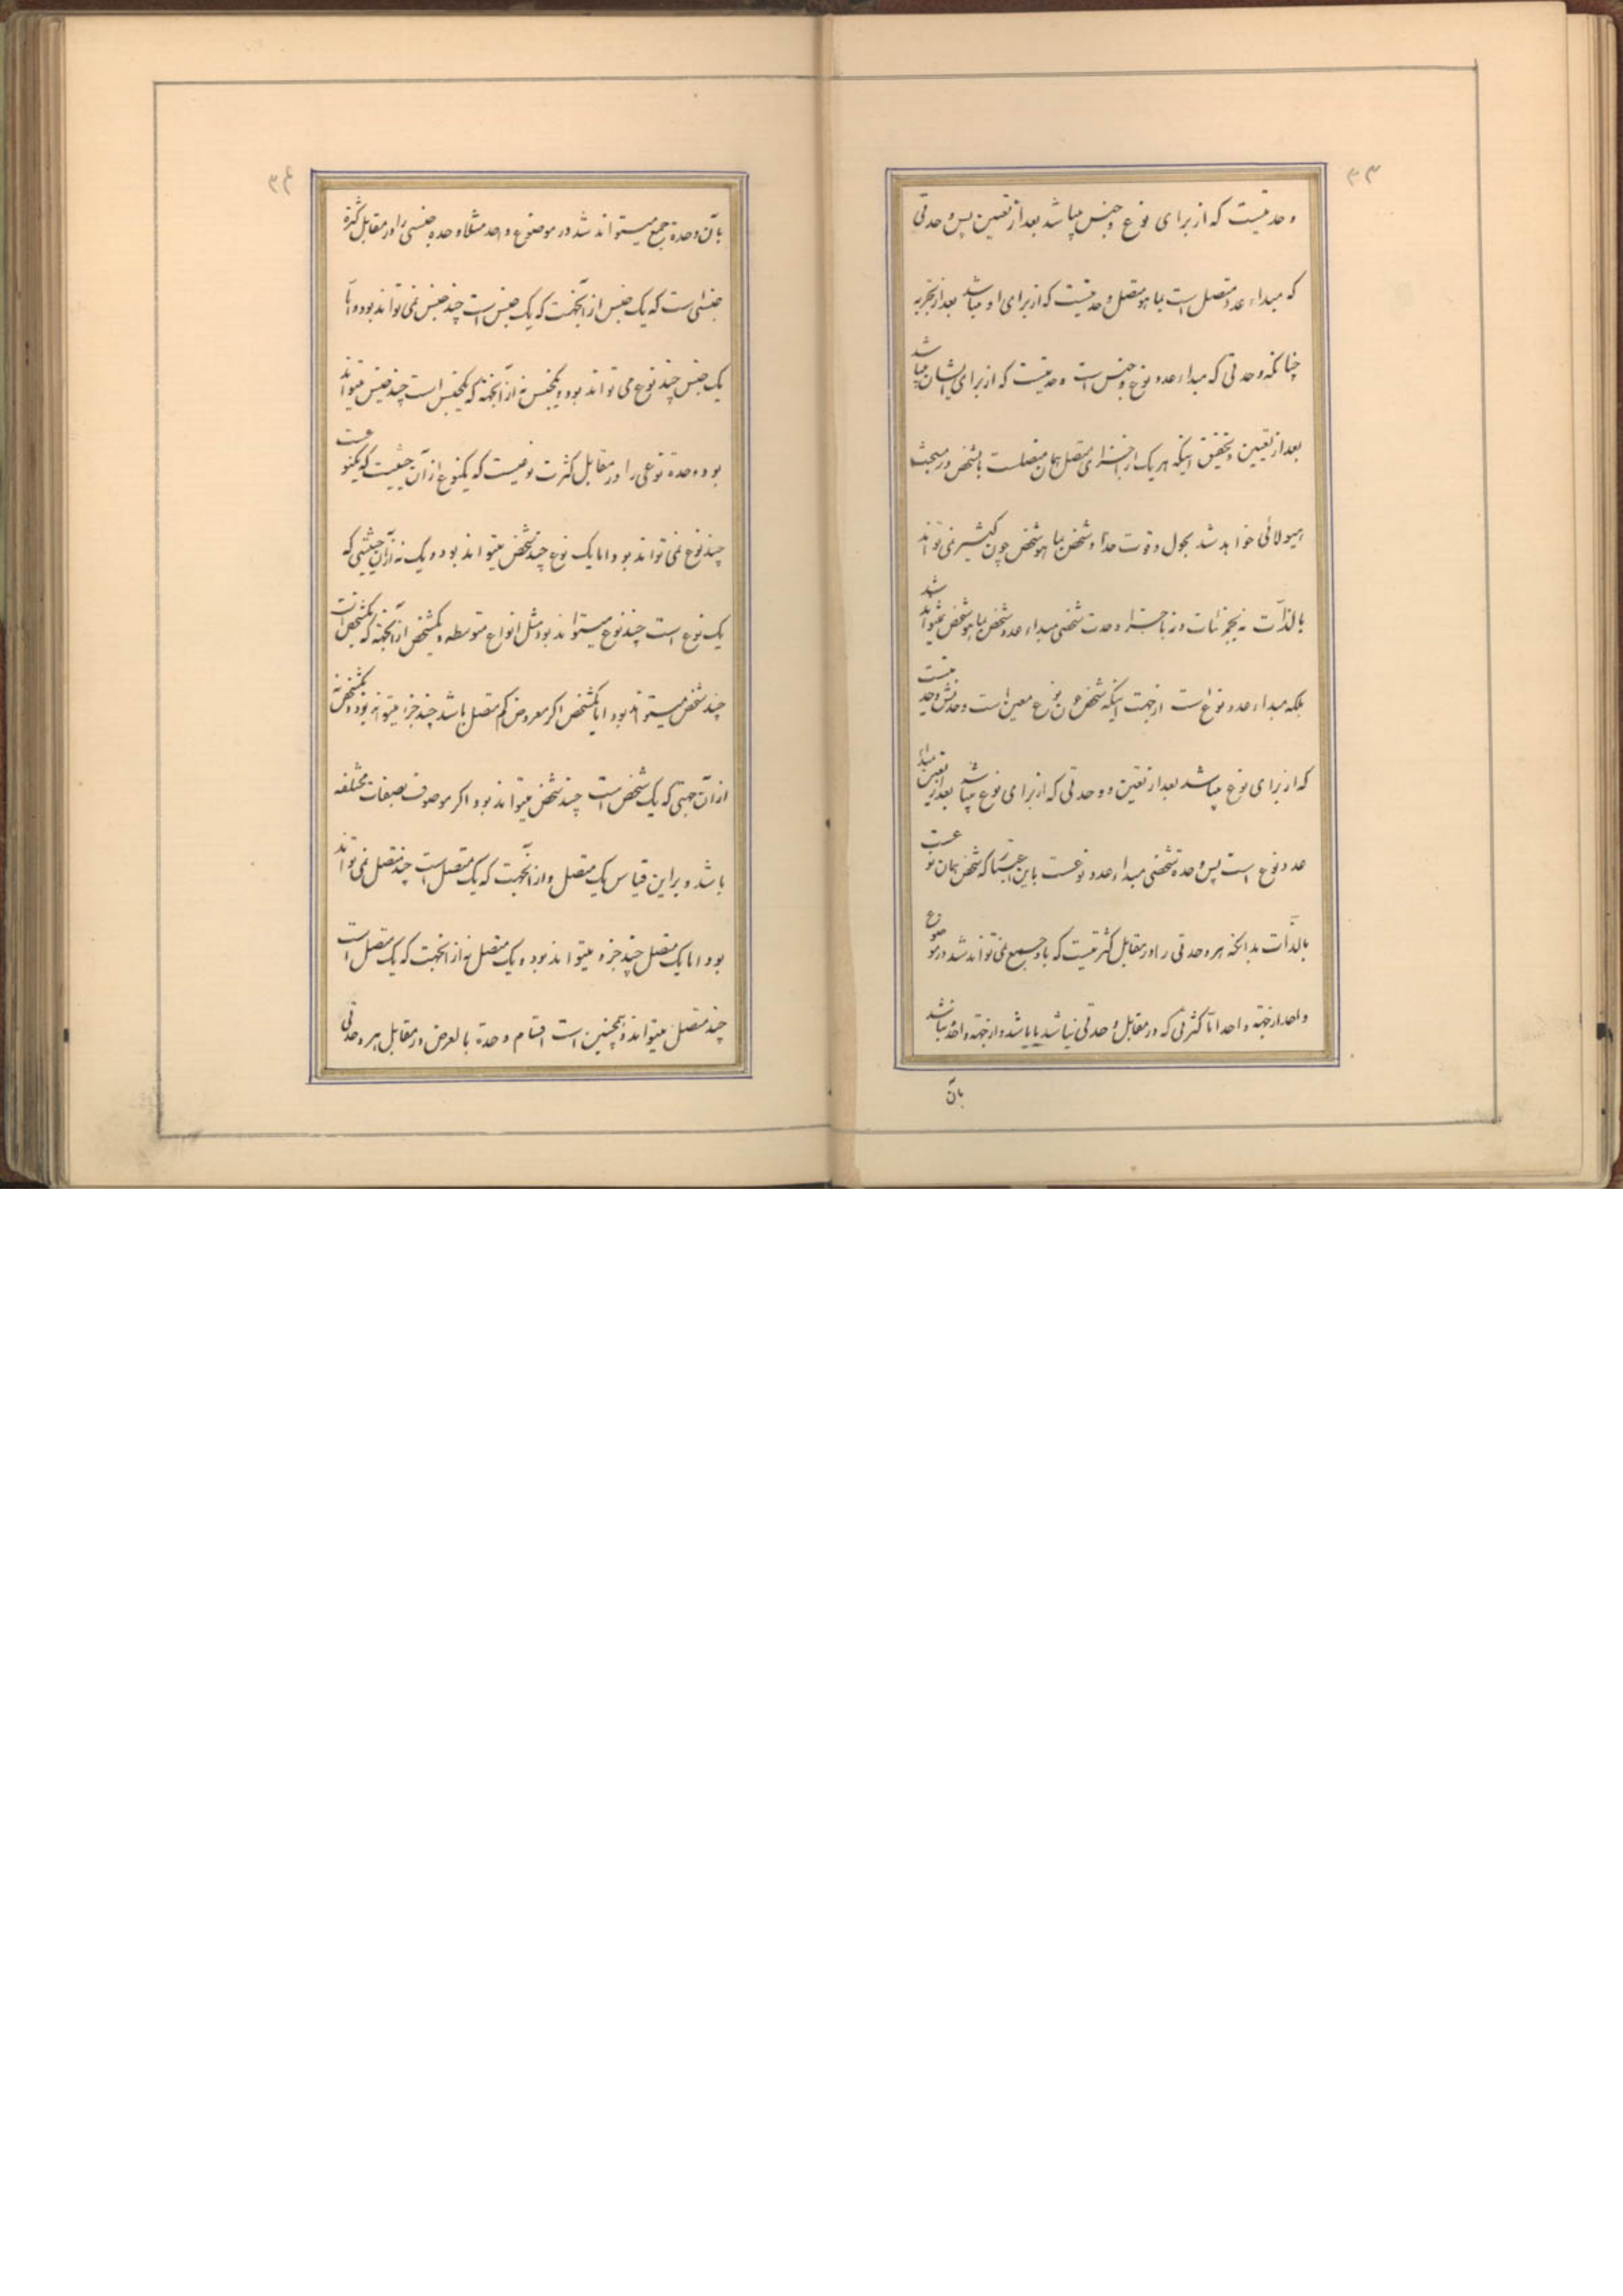 ۳۳
وحدتیست که از برای نوع و جنس میباشد بعد از تعیین پس وحدتی
که مبداء عدد متصل است بما هو متصل وحدتیست که از برای او میباشد بعد از تجزیه
چنانکه وحدتی که مبداء عدد نوع و جنس است وحدتیست که از برای ایشان میباشد
بعد از تعیین و تحقیق اینکه هر یک از اجزای متصل همان متصلست بالشخص در مبحث
هیولائی خواهد شد بحول و قوت خدا و شخص بما هو شخص چون کثیر نمی تواند شد
بالذات نه بجزئیات و نه باجزاء وحدت شخصی مبداء عدد شخص بما هو شخص نمیتواند
بلکه مبداء عدد نوع است از جهت اینکه شخص نوع معین است و وحدتش وحدتیست
که از برای نوع میباشد بعد از تعین و وحدتی که از برای نوع میباشد بعد از تعین مبداء
عدد نوع است پس وحدة شخصی مبداء عدد نوعست باین اعتبار که شخص همان نوعست
بالذات بدانکه هر وحدتی را در مقابل کثرتیست که با او جمع نمی تواند شد در موضوع
واحد از جهة واحد اما کثرتی که در مقابل وحدتی نباشد یا باشد و از جهة واحد نباشد
بآن
۳۴
بآن وحدة جمع میتواند شد در موضوع واحد مثلا وحده جنسی را در مقابل کثرة
جنسی است که یک جنس از آنجهت که یک جنس است چند جنس نمی تواند بود و اما
یک جنس چند نوع می تواند بود و یکجنس نه از آنجهة که یکجنس است چند جنس میتواند
بود وحدة نوعی را در مقابل کثرت نوعیست که یکنوع از آن حیثیت که یکنوعست
چند نوع نمی تواند بود و اما یک نوع چند شخص میتواند بود و یک نه از آن حیثیتی که
یک نوع است چند نوع میتواند بود مثل انواع متوسطه و یکشخص از آنجهة که یکشخص است
چند شخص میتواند بود اما یکشخص اگر معروض کم متصل باشد چند جزء میتواند بود و یکشخص نه
از آن جهتی که یک شخص است چند شخص میتواند بود اگر موصوف بصفات مختلفه
باشد و بر این قیاس یک متصل و از آنجهت که یک متصل است چند متصل نمی تواند
بود اما یک متصل چند جزء میتواند بود و یک متصل نه از انجهت که یک متصل است
چند متصل میتواند و همچنین است اقسام وحدة بالعرض در مقابل هر وحدتی